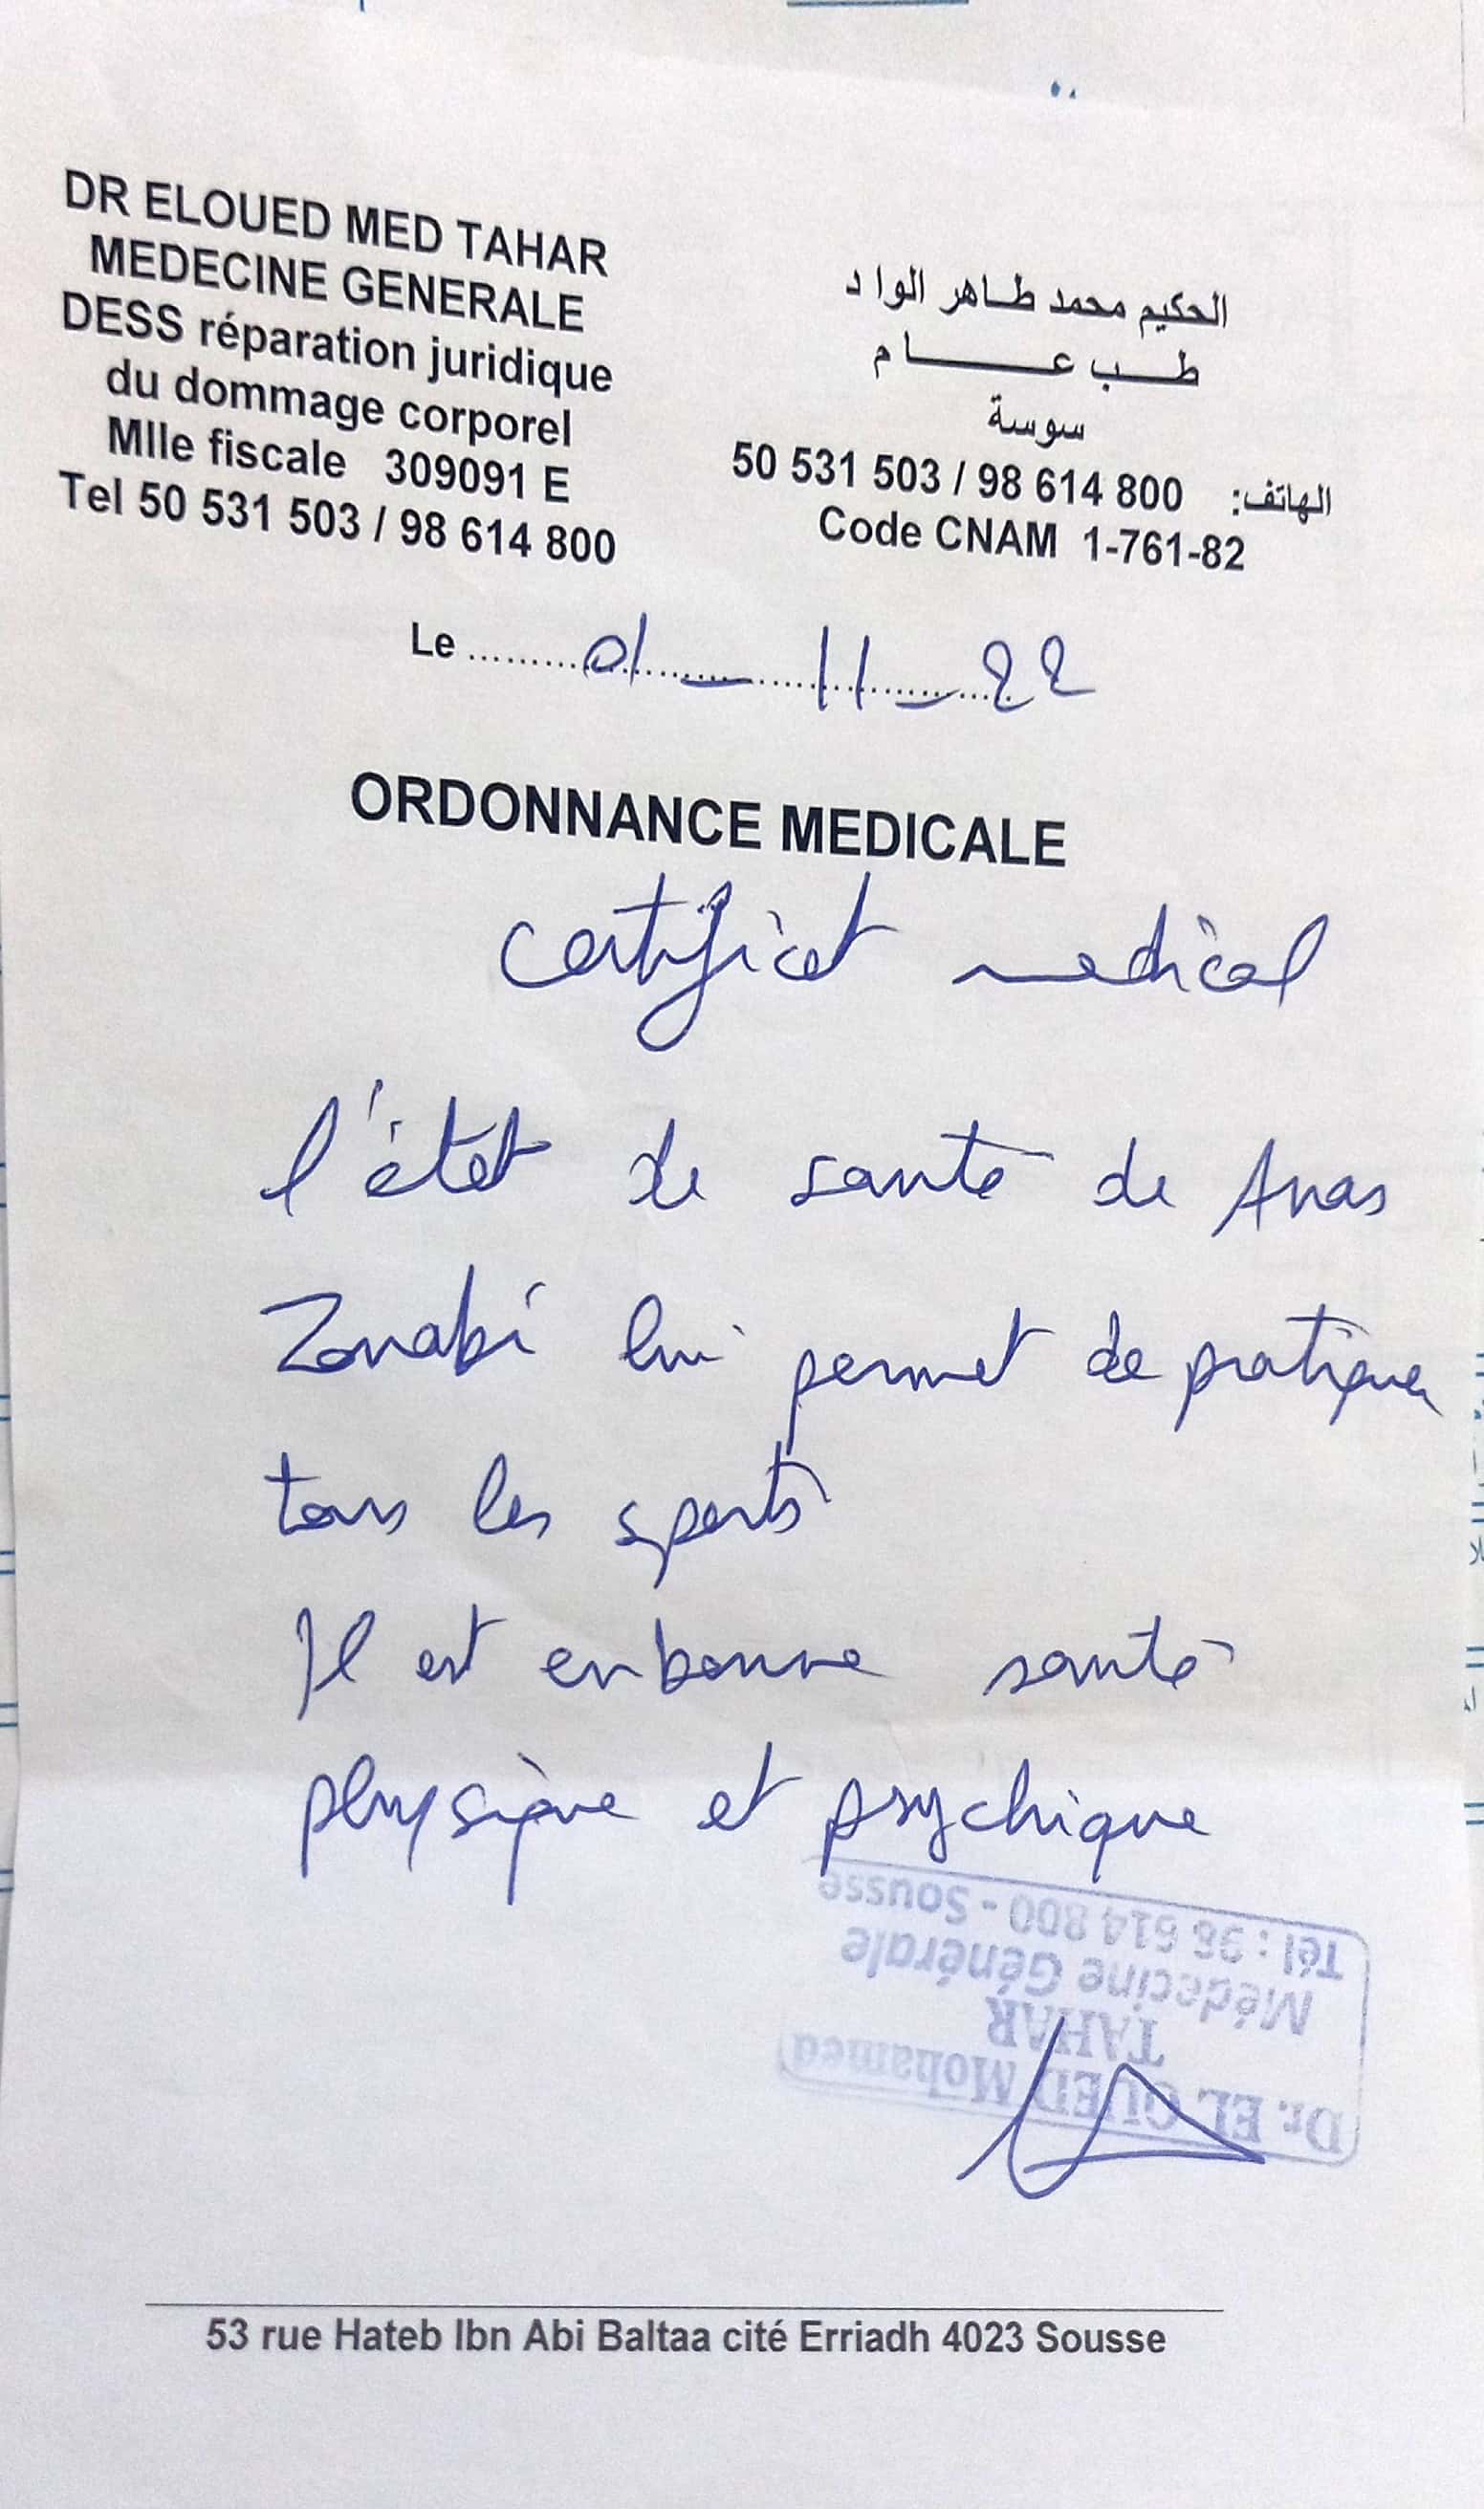 DR ELOUED MED TAHAR
MEDECINE GENERALE
DESS réparation juridique
du dommage corporel
Mlle fiscale 309091 E
Tel 50 531 503 / 98 614 800
الحكيم محمد طاهر الواد
طب عام
سوسة
50 531 503 / 98 614 800 الهاتف:
Code CNAM 1-761-82
Le 01 - 11 - 22
ORDONNANCE MEDICALE
certificat medical
l'état de santé de Anas
Zouabi lui permet de pratiquer
tous les sports
Il est en bonne santé
physique et psychique
Dr. EL OUED Mohamed
TAHAR
Médecine Générale
Tél : 98 614 800 - Sousse
53 rue Hateb Ibn Abi Baltaa cité Erriadh 4023 Sousse